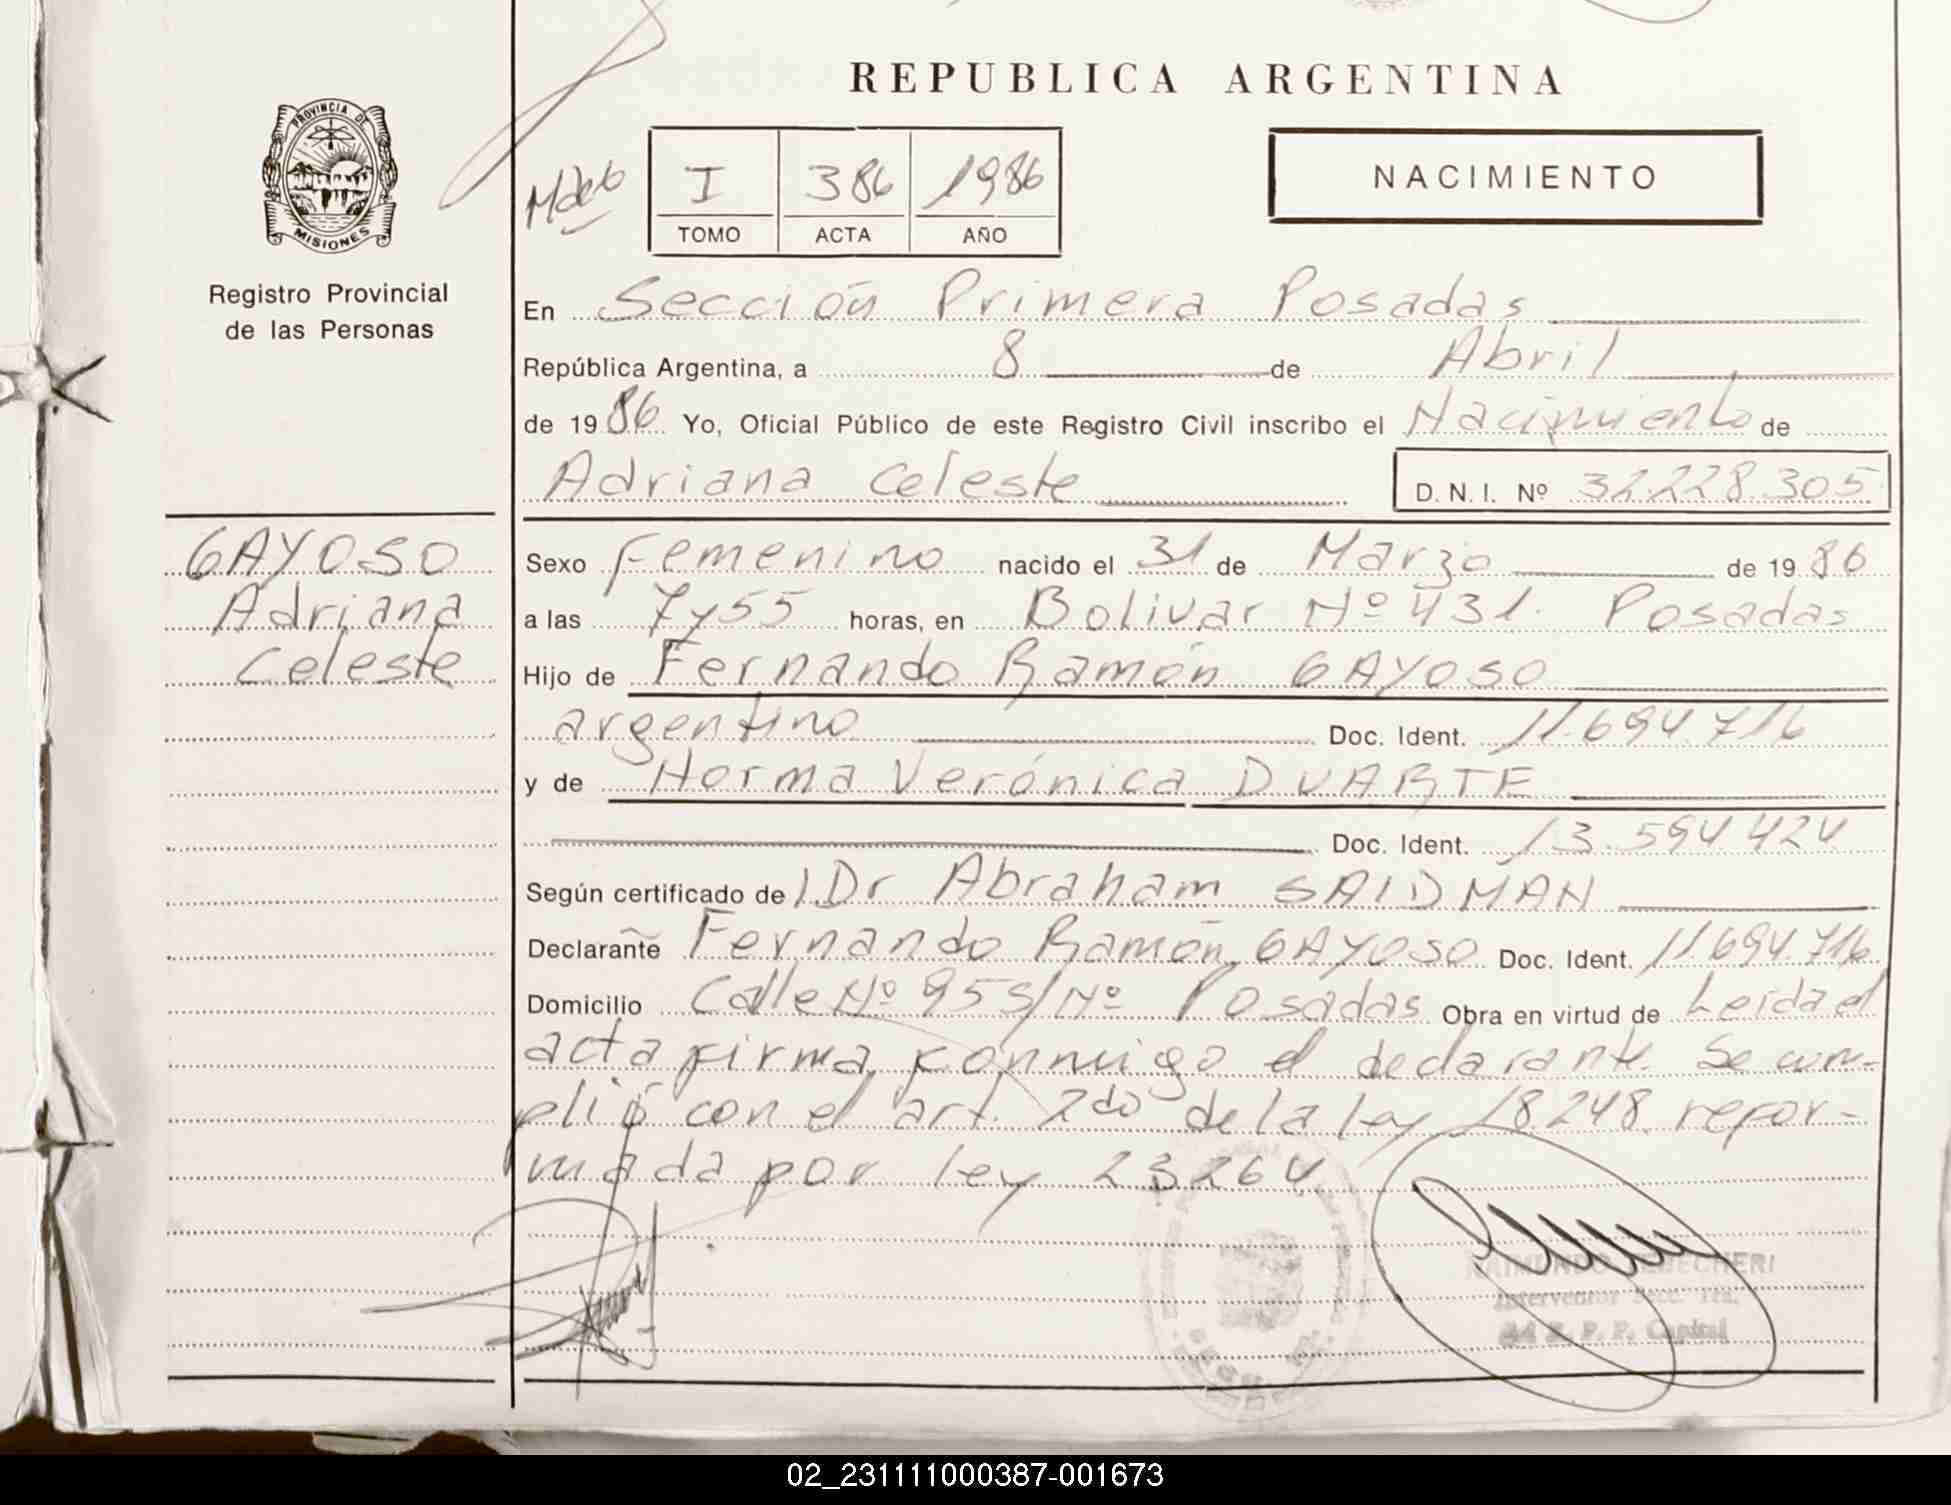 REPUBLICA ARGENTINA
PROVINCIA DE MISIONES
Registro Provincial
de las Personas
I 386 1986
TOMO ACTA AÑO
NACIMIENTO
En Sección Primera Posadas
República Argentina, a 8 de Abril
de 1986 Yo, Oficial Público de este Registro Civil inscribo el Nacimiento de
Adriana Celeste D. N. I. Nº 32.228.305
GAYOSO
Adriana
Celeste
Sexo Femenino nacido el 31 de Marzo de 1986
a las 7y55 horas, en Bolivar Nº 431. Posadas
Hijo de Fernando Ramón GAYOSO
argentino Doc. Ident. 11.694.716
y de Norma Verónica DUARTE
Doc. Ident. 13.594.424
Según certificado de l Dr Abraham SAIDMAN
Declarante Fernando Ramón GAYOSO Doc. Ident. 11.694.716
Domicilio Calle Nº 95 S/Nº Posadas Obra en virtud de Leída el
acta firma konmigo el declarante. Se cum-
plió con el art. 2do de la ley 18248 refor-
mada por ley 23264.
Interventor Secc. 1ra.
R. P. P. Capital
02_231111000387-001673